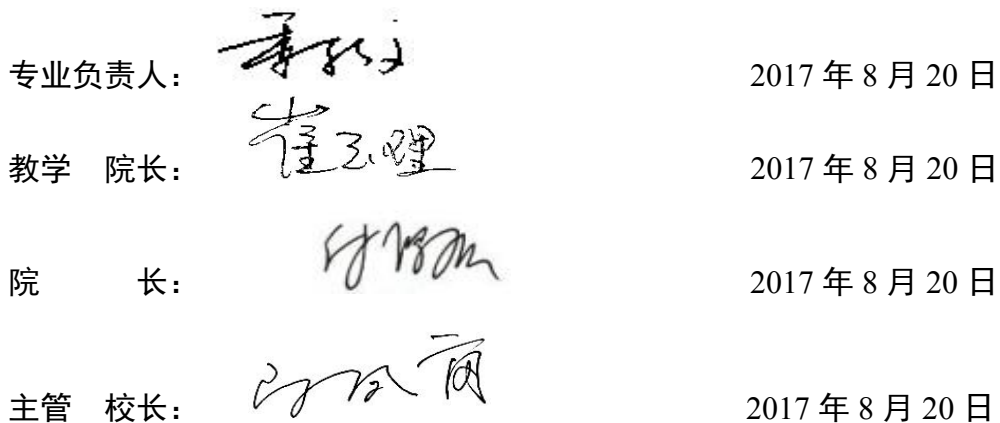 专业负责人： 2017 年 8 月 20 日
教学 院长： 2017 年 8 月 20 日
院 长： 2017 年 8 月 20 日
主管 校长： 2017 年 8 月 20 日